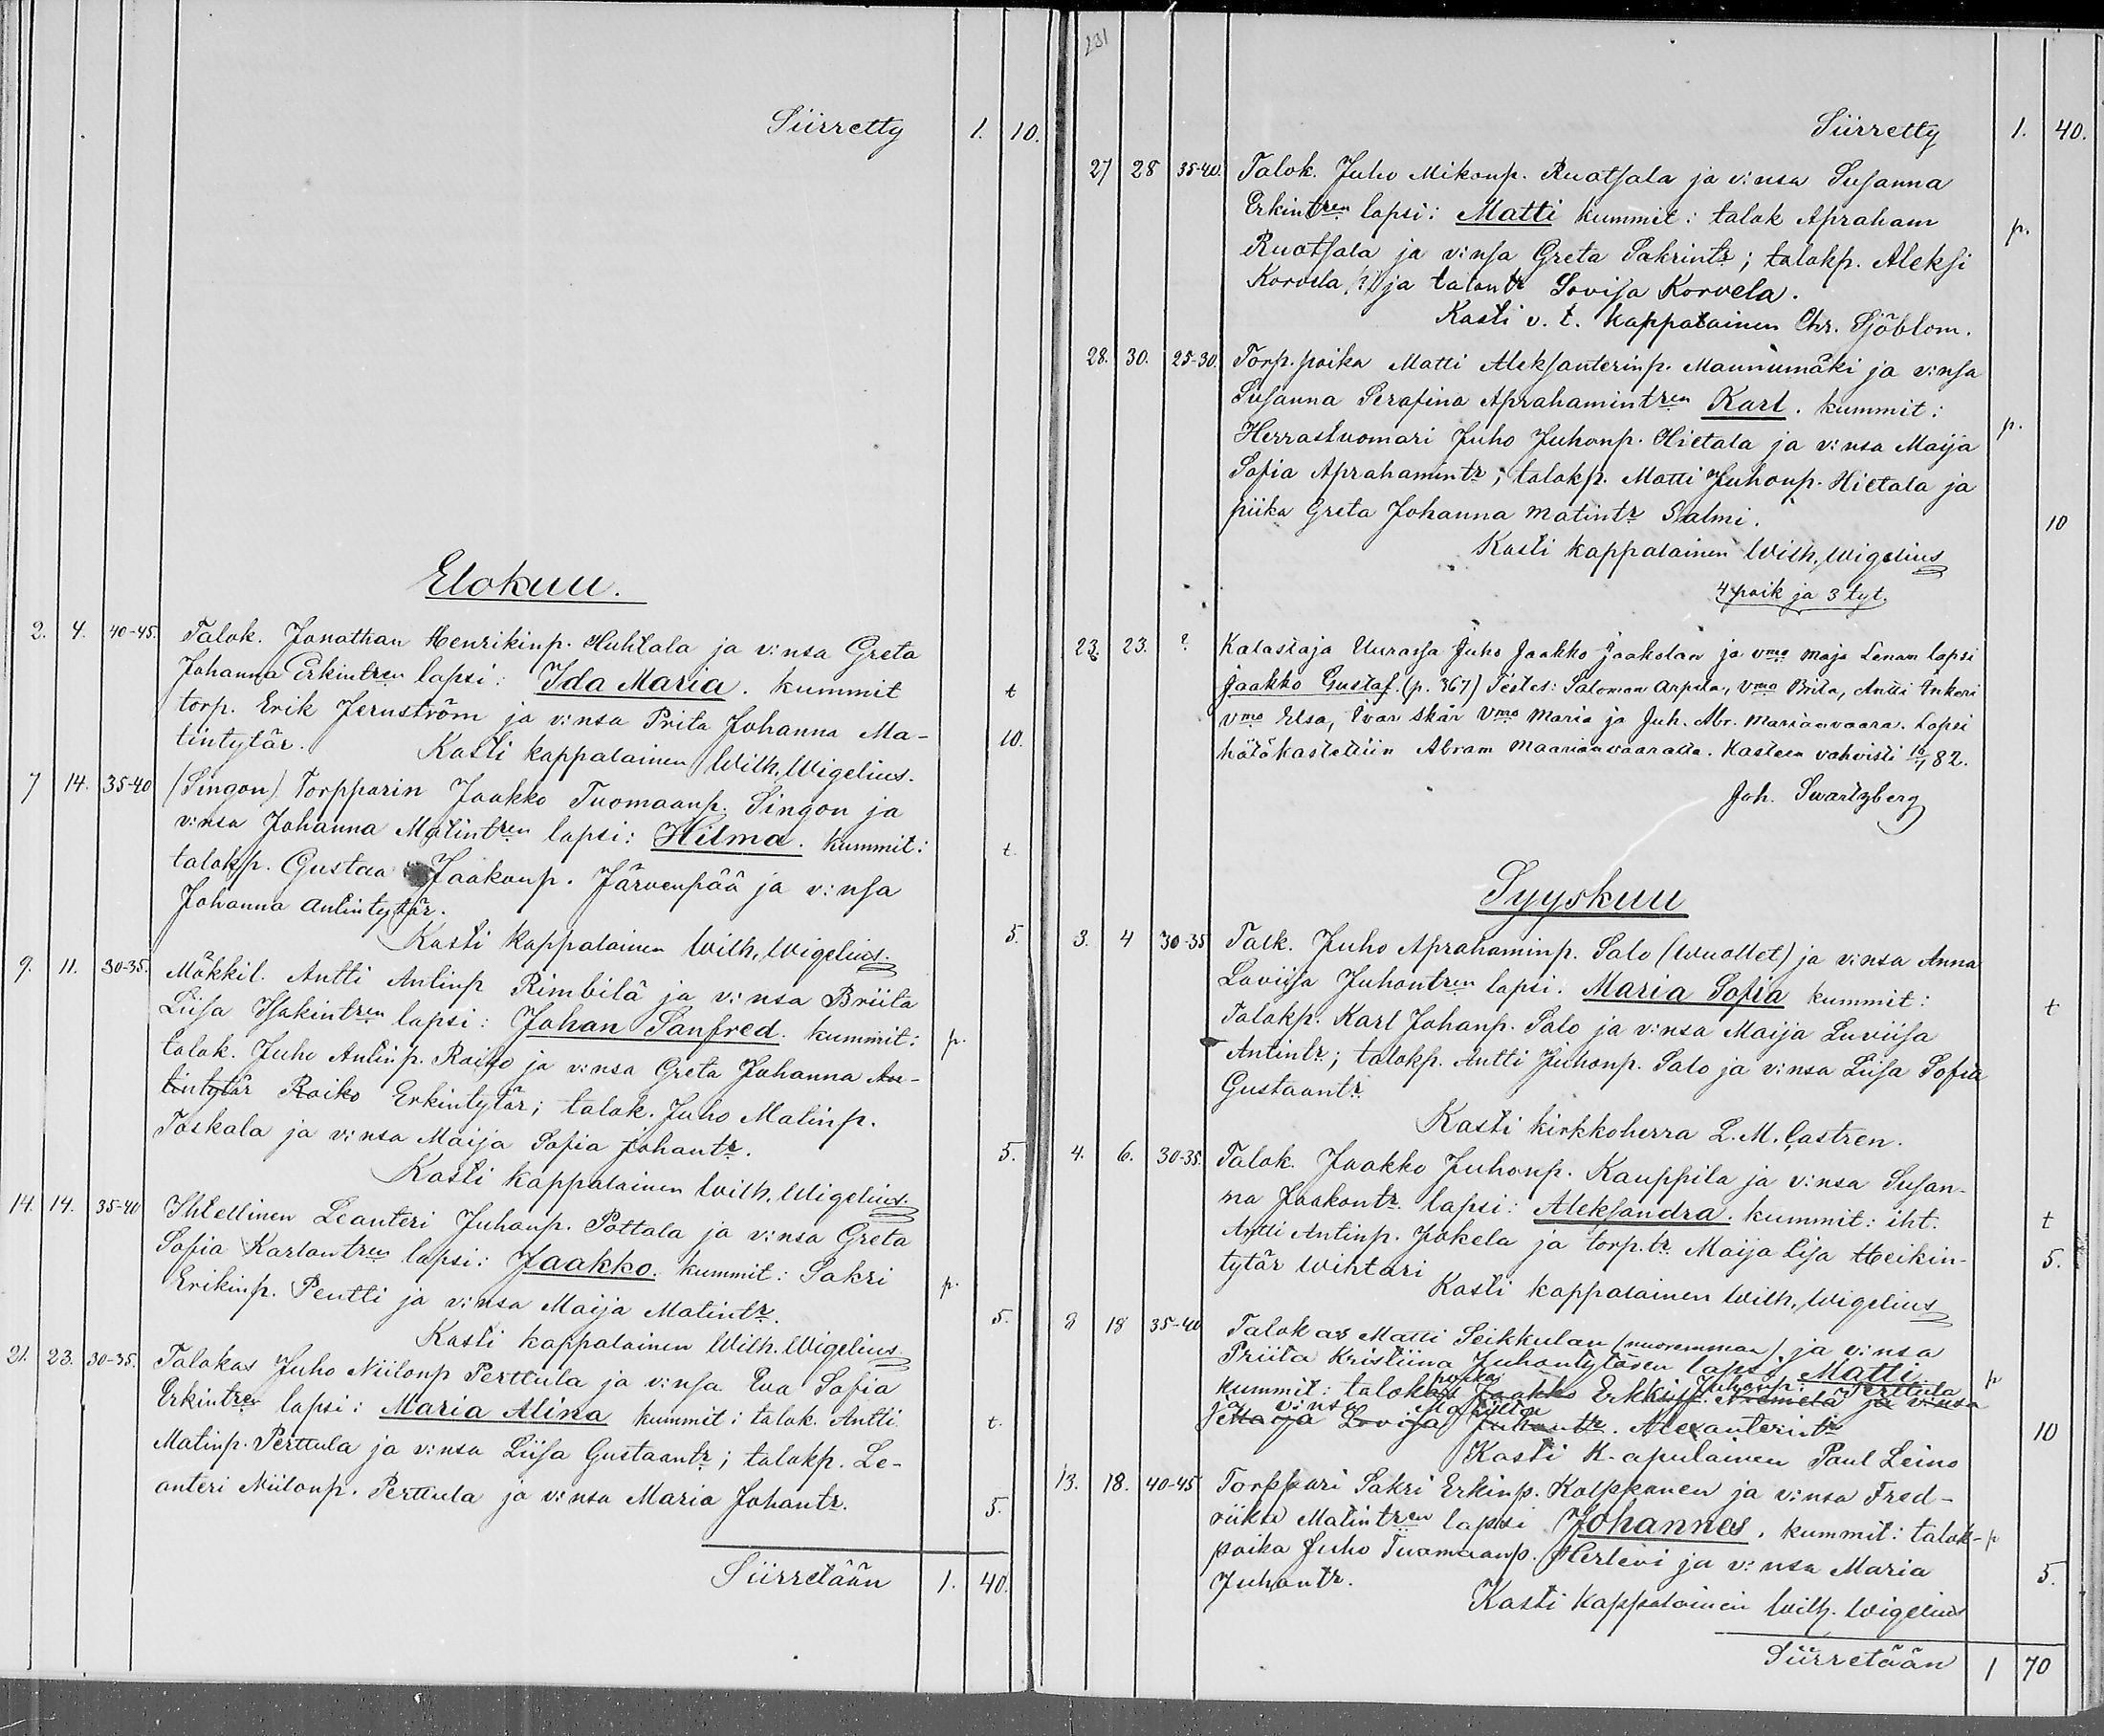 Siirretty 1. 10.
Elokuu.
2. 4. 40-45. Talok. Jonathan Henrikinp. Huhtala ja v:nsa Greta
Johanna Erkintren lapsi: Ida Maria. kummit t
torp. Erik Jernström ja v:nsa Prita Johanna Ma-
tintytär. 10.
Kasti kappalainen Wilh. Wigelius.
7 14. 35-40 (Singon) Torpparin Jaakko Tuomaanp. Singon ja
v:nsa Johanna Matintren lapsi: Hilma. kummit: t.
talokp. Gustaa Jaakonp. Järvenpää ja v:nsa
Johanna Antintytär.
Kasti kappalainen Wilh. Wigelius. 5.
9. 11. 30-35. Mäkkil. Antti Antinp Rimbilä ja v:nsa Briita
Liisa Isakintren lapsi: Johan Sanfred. kummit: p.
talok. Juho Antinp. Raiko ja v:nsa Greta Johanna An-
tintytär Raiko Erkintytär; talok. Juho Matinp.
Toskala ja v:nsa Maija Sofia Johantr. 5.
Kasti kappalainen Wilh. Wigelius.
14. 14. 35-40 Ihtellinen Leanteri Juhonp. Pottala ja v:nsa Greta
Sofia Karlontren lapsi: Jaakko. kummit: Sakri p.
Erikinp. Pentti ja v:nsa Maija Matintr. 5.
Kasti kappalainen Wilh. Wigelius.
21. 23. 30-35. Talokas Juho Niilonp Perttula ja v:nsa Eva Sofia
Erkintren lapsi: Maria Alina kummit: talok. Antti t.
Matinp. Perttula ja v:nsa Liisa Gustaantr; talokp. Le-
anteri Niilonp. Perttula ja v:nsa Maria Johantr. 5.
Siirretään 1. 40.
231
Siirretty 1. 40.
27 28 35-40. Talok. Juho Mikonp. Ruotsala ja v:nsa Susanna
Erkintren lapsi: Matti kummit: talok Apraham p.
Ruotsala ja v:nsa Greta Sakrintr; talokp. Aleksi
Korvela (?) ja talontr Lovisa Korvela.
Kasti v. t. kappalainen Chr. Sjöblom.
28. 30. 25-30. Torp. poika Matti Aleksanterinp. Maunumäki ja v:nsa
Susanna Serafina Aprahamintren Karl. kummit: p.
Herrastuomari Juho Juhonp. Hietala ja v:nsa Maija
Sofia Aprahamintr; talokp. Matti Juhonp. Hietala ja
piika Greta Johanna Matintr Salmi. 10
Kasti kappalainen Wilh. Wigelius
4 poik ja 3 tyt.
23. 23. ? Kalastaja Uurassa Juho Jaakko Jaakolan ja vmo Maja Lenan lapsi
Jaakko Gustaf. (p. 367) Testes: Salomon Arpela, vmo Brita, Antti Inkeri
vmo Elsa, Ivar Skär vmo Maria ja Juh. Abr. Marianvaara. Lapsi
hätäkastettiin Abram Maarianvaaralta. Kasteen vahvisti 16/1 82.
Joh. Swartzberg
Syyskuu
3. 4 30-35 Talk. Juho Aprahaminp. Salo (Wuollet) ja v:nsa Anna
Loviisa Juhontren lapsi: Maria Sofia kummit: t
Talokp. Karl Johanp. Salo ja v:nsa Maija Luviisa
Antintr; talokp. Antti Juhonp. Salo ja v:nsa Liisa Sofia
Gustaantr.
Kasti kirkkoherra L. M. Castren.
4. 6. 30-35. Talok. Jaakko Juhonp. Kauppila ja v:nsa Susan-
na Jaakontr. lapsi: Aleksandra. kummit: iht. t
Antti Antinp. Jokela ja torp.tr. Maija Lisa Heikin- 5.
tytär Wihtari
Kasti kappalainen Wilh. Wigelius
9 18 35-40 Talokas Matti Seikkulan (nuoremman) ja v:nsa
Priita Kristiina Juhontytären lapsi Matti p
poika Juhonp. Perttula
kummit: talokas Jaakko Erkkinp. ja v:nsa
ja v:nsa Matilta
Maija Lovisa Juhontr. Alexanterintr 10
Kasti K. apulainen Paul Leino
13. 18. 40-45 Torppari Sakri Erkinp. Kolppanen ja v:nsa Fred-
riikka Matintren lapsi Johannes. kummit: talok- p
poika Juho Tuomaanp. Herlevi ja v:nsa Maria
Juhontr. 5.
Kasti kappalainen Wilh. Wigelius
Siirretään 1 70